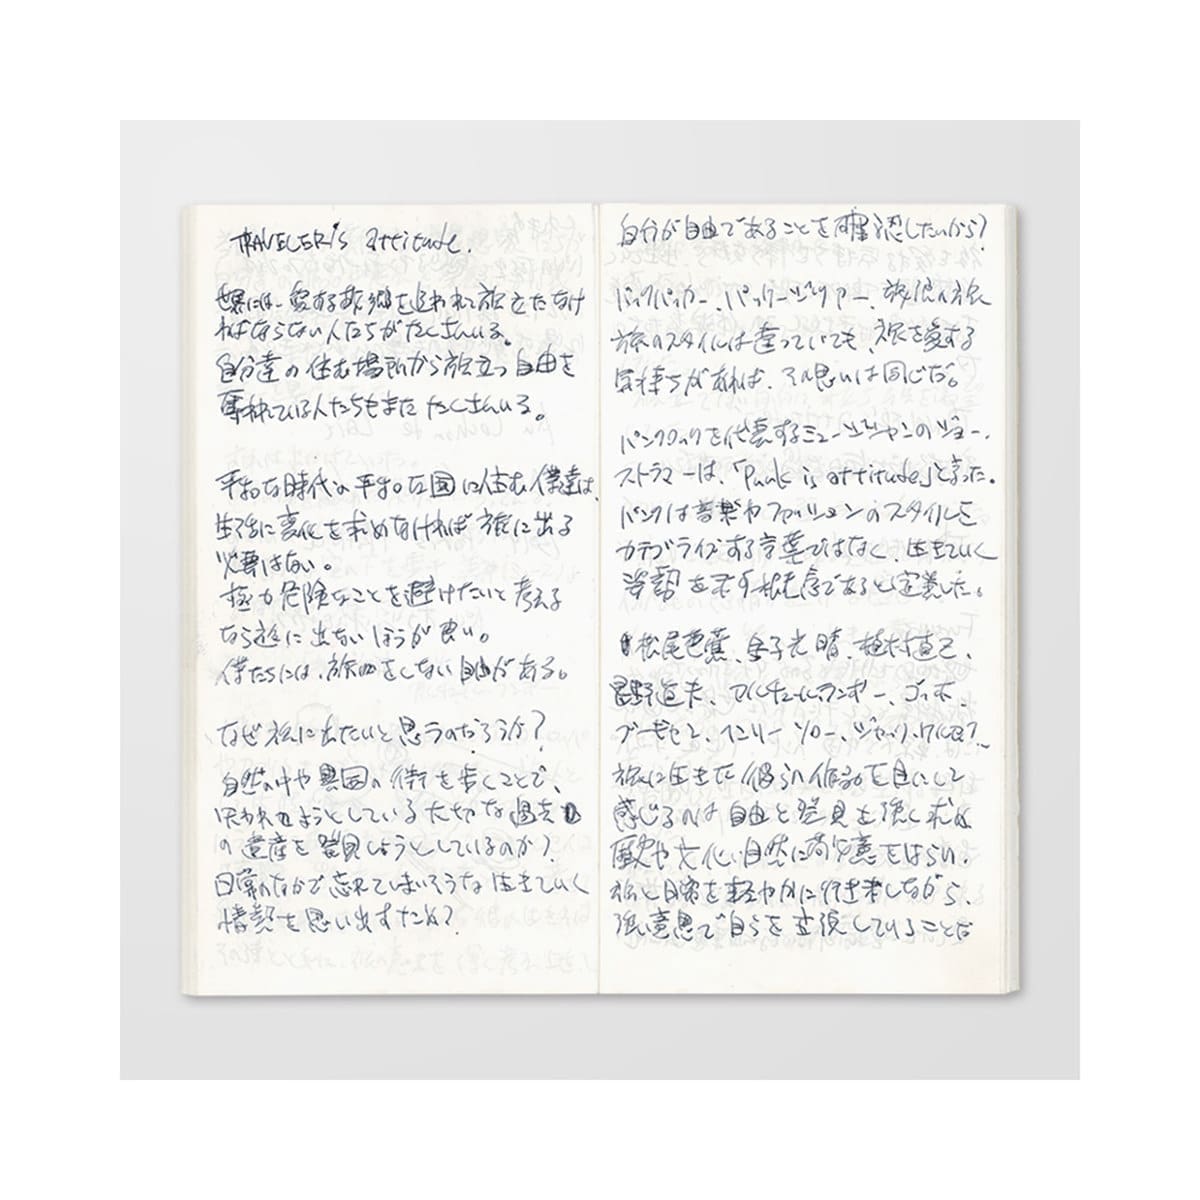 TRAVELER'S attitude.
世界には、愛する故郷を追われて旅立たなけ
ればならない人たちがたくさんいる。
自分達の住む場所から旅立つ自由を
奪われている人たちもまたたくさんいる。
平和な時代の平和な国に住む僕達は、
生活に変化を求めなければ旅に出る
必要はない。
極力危険なことを避けたいと考える
なら旅に出ないほうが良い。
僕たちには、旅をしない自由がある。
なぜ旅に出たいと思うのだろうか?
自然の中や異国の街を歩くことで、
失われようとしている大切な過去
の遺産を発見しようとしているのか?
日常のなかで忘れてしまいそうな生きていく
情熱を思い出すため?
自分が自由であることを確認したいから?
バックパッカー、パッケージツアー、旅
旅のスタイルは違っていても、旅を愛する
気持ちがあれば、その思いは同じだ。
パンクロックを代表するミュージシャンのジョー・
ストラマーは、「Punk is attitude」と言った。
パンクは音楽やファッションのスタイルを
カテゴライズする言葉ではなく、生きていく
姿勢を示す概念であると定義した。
松尾芭蕉、金子光晴、植村直己、
星野道夫、アルチュール・ランボー、ゴッホ、
ゴーギャン、ヘンリー・ソロー、ジャック・ケルアック
旅に生きた彼らの作品を目にして
感じるのは自由と発見を強く求め
歴史や文化、自然に敬意をはらい、
旅と日常を軽やかに行き来しながら
強い意思で自らを主張していることだ